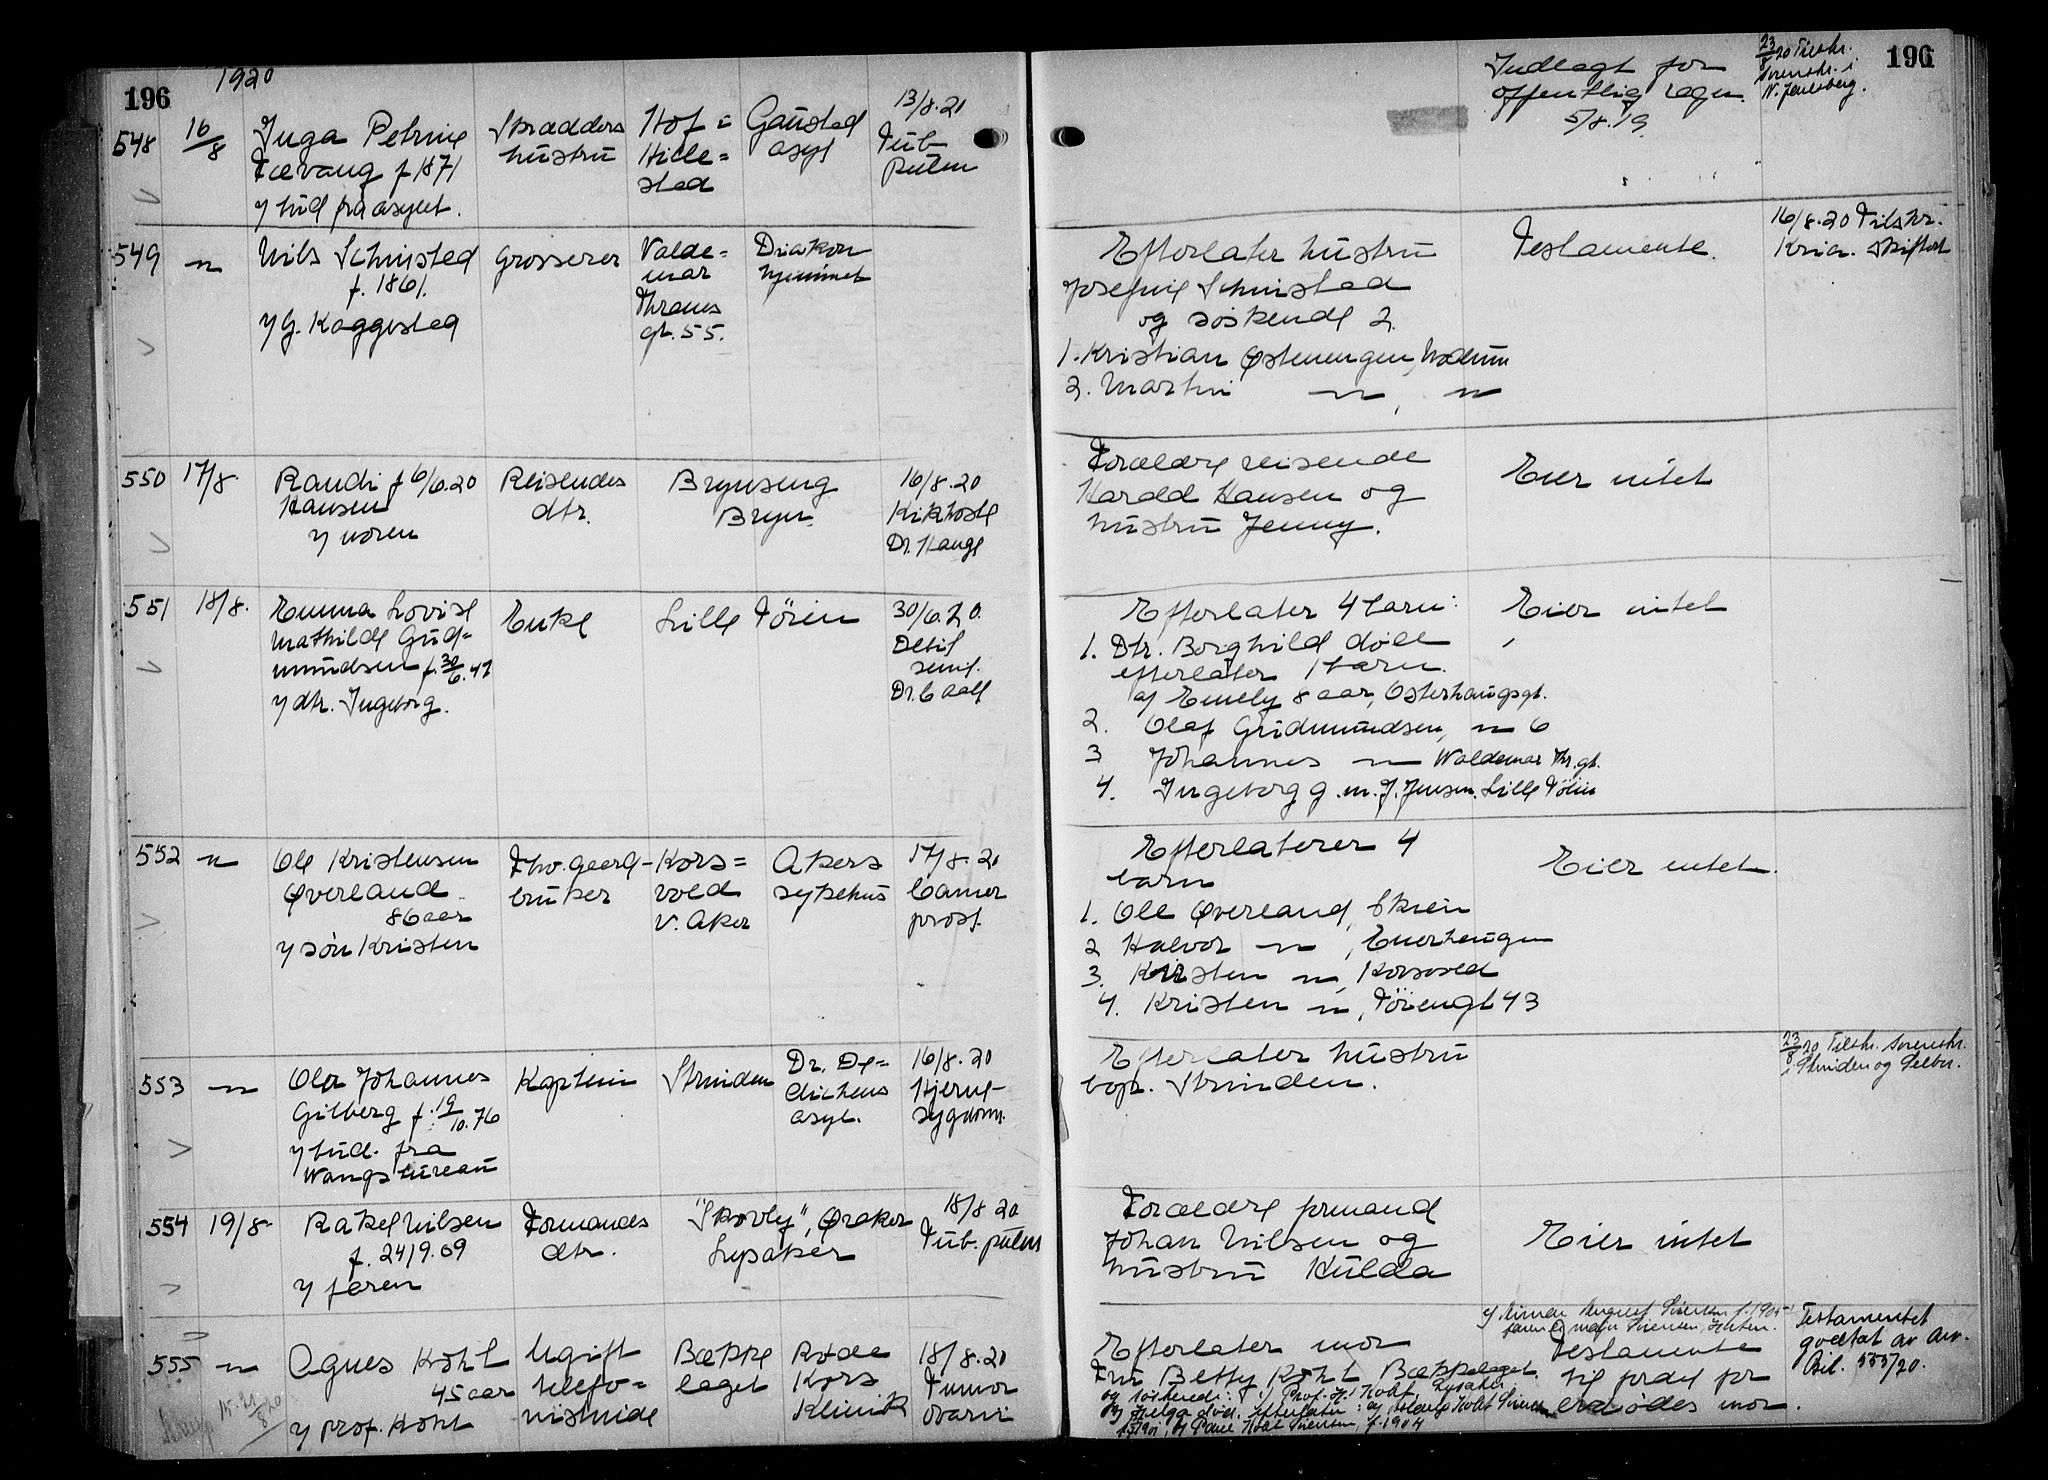 196
1920
548
16/8
Inga Petrine
Fævang f 1871
v/ bud fra asylet.
Skrædders
hustru
Hof i
Hille=
stad
Gaustad
asyl
13/8.20
Tub.
pulm
Indlagt for
offentlig regn.
5/8.19
23/8 20 Tilskr.
Sorenskr. i
N. Jarlsberg.
196
549
"
Nils Schiestad
f. 1861.
v/ G. Kaggestad
Grosserer
Valde=
mar
Thranes
gt. 55.
Diakon
hjemmet
Efterlater hustru
Josefine
og søskende 2.
1. Kristian Østenengen,
2. Martin " , "
Testamente.
16/8.20 Tilskr.
Kria. skifteret
550
17/8.
Randi f 6/6.20
Hansen
v/ moren
Reisendes
dtr.
Brynseng
Bryn.
16/8.20
Kikhoste
Dr. Hauge
Forældre reisende
Harald Hansen og
hustru Jenny.
Eier intet
551
18/8.
Emma Lovise
Mathilde Gud=
mundsen f. 30/6.47
v/ dtr. Ingeborg.
Enke
Lille Tøien
30/6.20.
Debil
senil.
Efterlater 4 barn:
1. Dtr. Borghild død
efterlater 1 barn.
a/ Emely 8 aar, Osterhausgt.
2. Olaf Gudmundsen, " 6
3 Johannes " Waldemar Thr. gt.
4. Ingeborg g. m. J. Jensen. Lille Tøien
Eier intet
552
"
Ole Kristensen
Øverland
86 aar
v/ søn Kristen
Fhv. gaard-
bruker
Kors=
vold
V. Aker
Akers
sykehus
17/8.20
Cancer
prost.
Efterlaterer 4
barn
1. Ole Øverland, Skien
2 Halvor " , Enerhaugen
3. Kirsten " , Korsvold
4. Kristen " , Tøiengt 43
Eier intet.
553
"
Ola Johannes
Gilberg f. 19/10.76
v/ bud. fra
Wangs bureau
Kaptein
Strinden
Dr. De=
dichens
asyl.
16/8.20
Hjerte-
sygdom.
Efterlater hustru
bopl. Strinden.
23/8 20 Tilskr. Sorenskr.
i Strinden og Selbu.
554
19/8.
Rakel Nilsen
f. 24/9.09
v/ faren
Formands
dtr.
"Skovly", Øraker
Lysaker
18/8 20
Tub. pulm
Forældre formand
Johan Nilsen og
hustru Hulda
Eier intet
555
"
Agnes Holst
45 aar
v/ prof. Holst
Ugift
telefo=
nistinde
Bække
laget
Røde
Kors
Klinik
18/8.20
Tumor
ovarii
Efterlater mor
Fru Betty Holst Bækkelaget
og søskende: 1) Prof. H. Holst, Lysaker
2) Helga død. Efterlater: a)
f. 1901, b) Holst Sørensen, f. 1904
c/ August Sørensen f. 1905
faren er major Sørensen,
Testamente
til fordel for
mor.
Testamentet
godtat av arv.
Bil. 555/20.